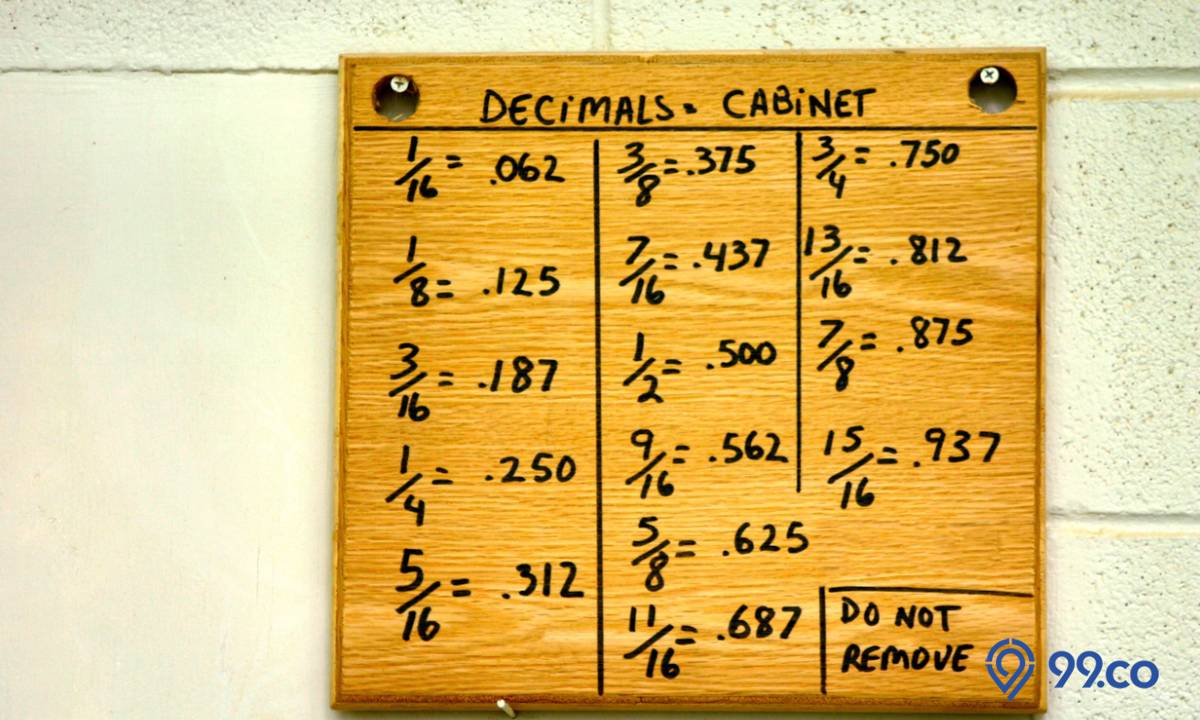 DECIMALS - CABINET
1/16 = .062
1/8 = .125
3/16 = .187
1/4 = .250
5/16 = .312
3/8 = .375
7/16 = .437
1/2 = .500
9/16 = .562
5/8 = .625
11/16 = .687
3/4 = .750
13/16 = .812
7/8 = .875
15/16 = .937
DO NOT
REMOVE
99.co